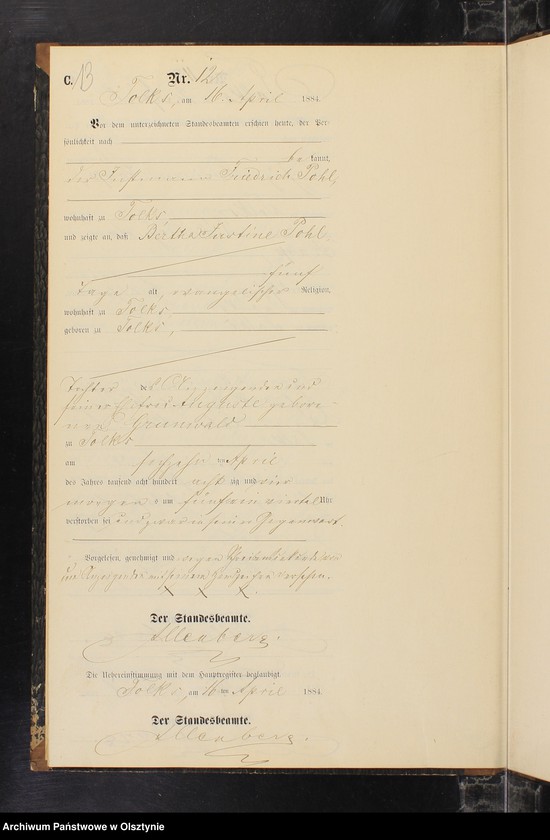 C. 13
Nr. 12
Tolks, am 16 April 1884
Vor dem unterzeichneten Standesbeamten erschien heute, der Per-
sönlichkeit nach
be kannt,
der Instmann Friedrich Pohl,
wohnhaft zu Tolks,
und zeigte an, daß Bertha Justine Pohl
fünf
Tage alt, evangelischer Religion,
wohnhaft zu Tolks,
geboren zu Tolks,
Tochter des Anzeigenden und
seiner Ehefrau Auguste gebore-
nen Grunwald
zu Tolks
am sechzehn ten April
des Jahres tausend acht hundert acht zig und vier
morgens um fünf ein viertel Uhr
verstorben sei und zwar in seiner Gegenwart.
Vorgelesen, genehmigt und wegen Schreibensunkunde von
dem Anzeigenden mit seinem Handzeichen versehen.
X X X.
Der Standesbeamte.
Die Uebereinstimmung mit dem Hauptregister beglaubigt.
Tolks, am 16 ten April 1884.
Der Standesbeamte.
Archiwum Państwowe w Olsztynie